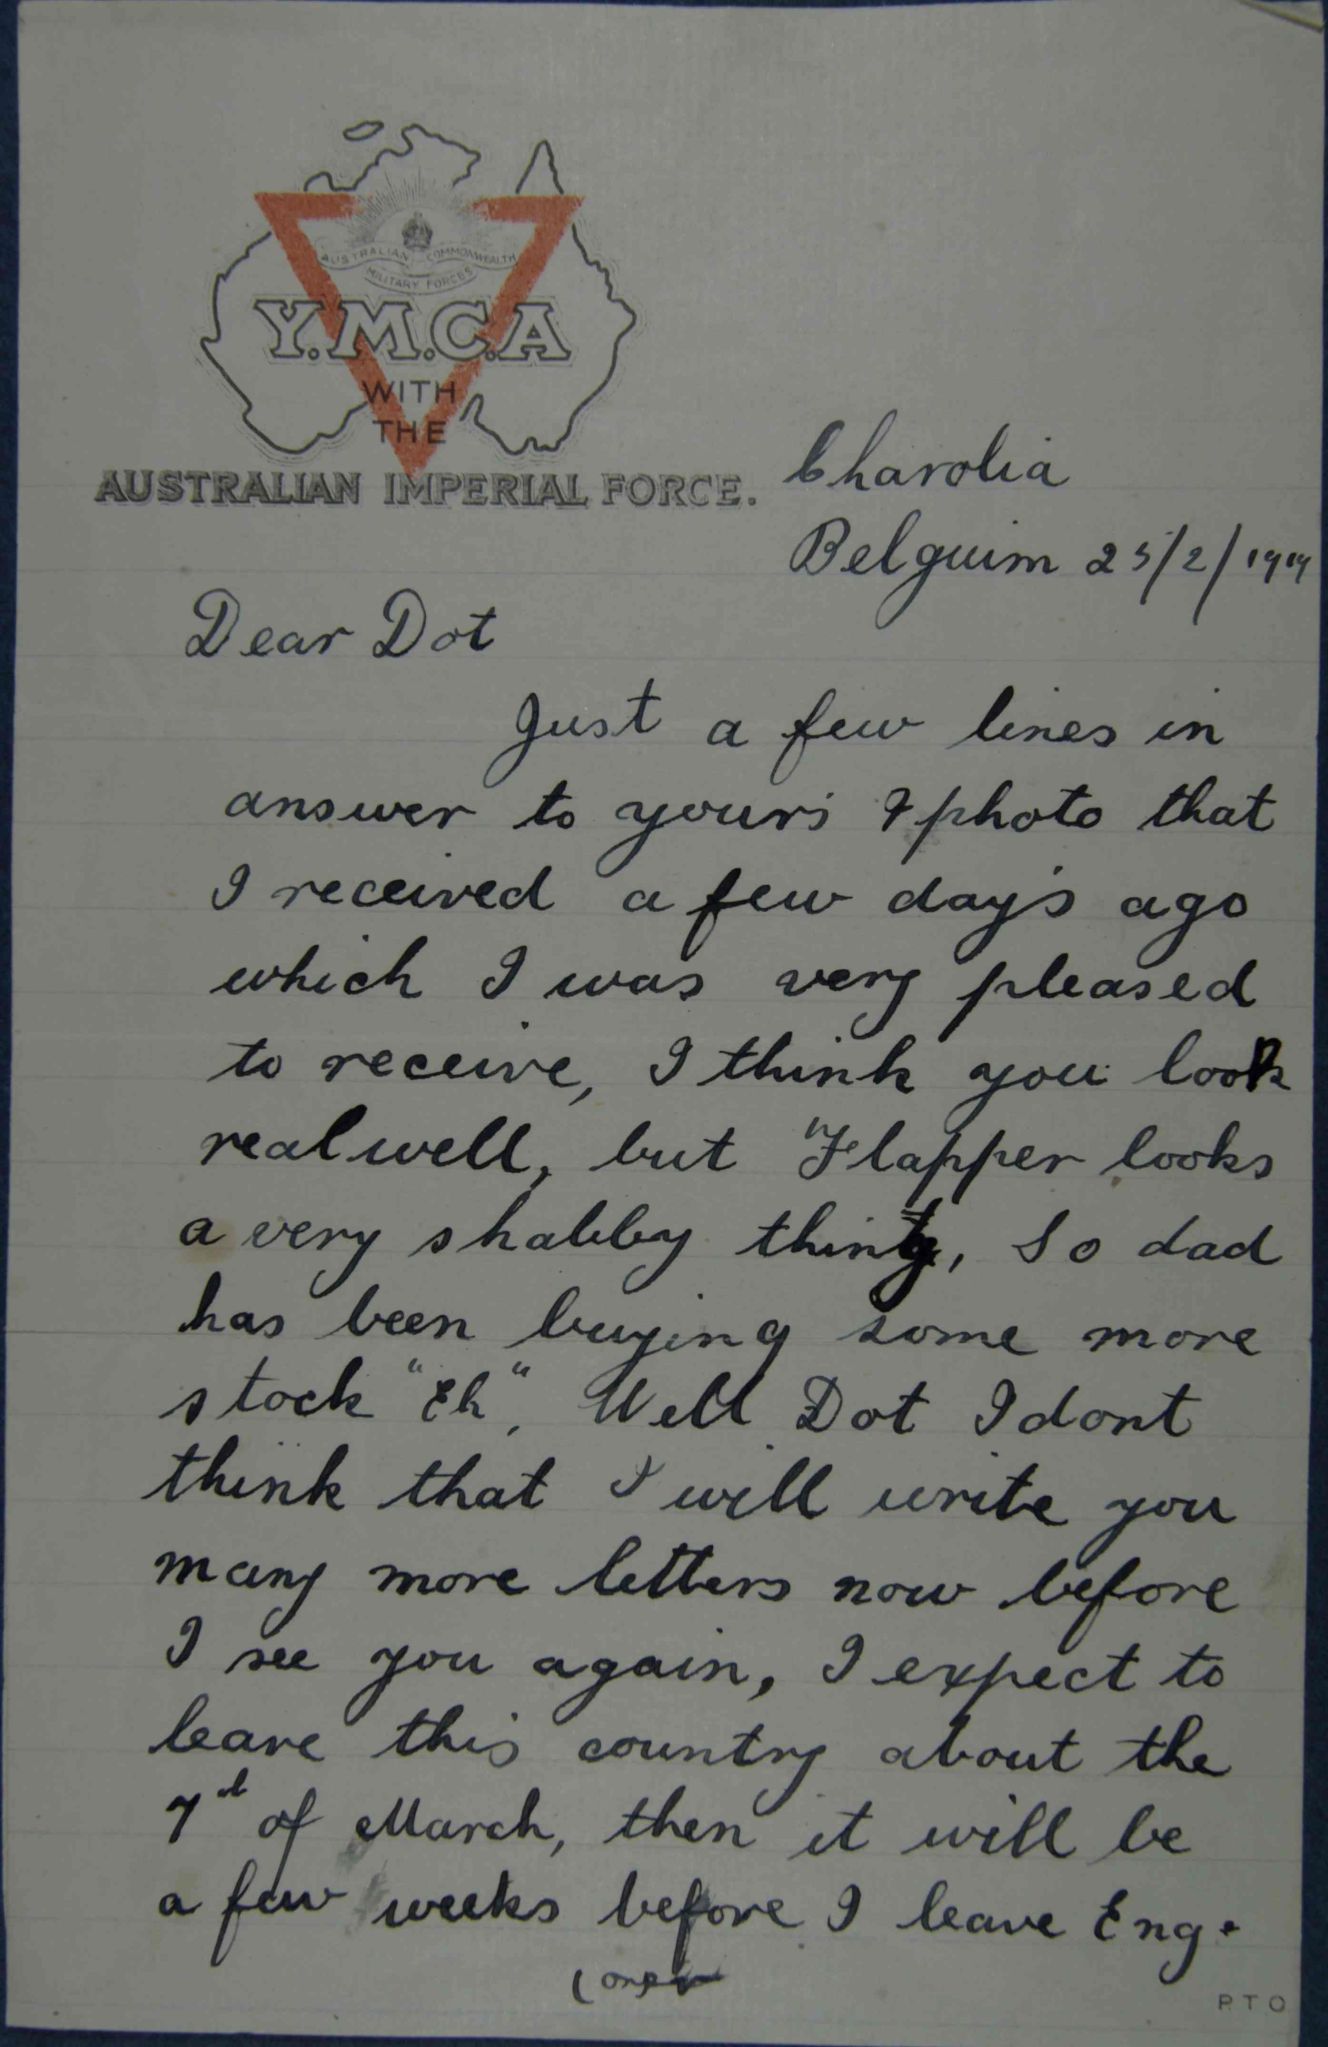 AUSTRALIAN COMMONWEALTH
MILITARY FORCES
Y.M.C.A
WITH
THE
AUSTRALIAN IMPERIAL FORCE.
Charolia
Belguim 25/2/1919
Dear Dot
Just a few lines in
answer to yours & photo that
I received a few days ago
which I was very pleased
to receive, I think you look
real well, but "Flapper looks
a very shabby thing, So dad
has been buying some more
stock "Eh". Well Dot I dont
think that I will write you
many more letters now before
I see you again, I expect to
leave this country about the
7th of March, then it will be
a few weeks before I leave Eng.
(over
PTO